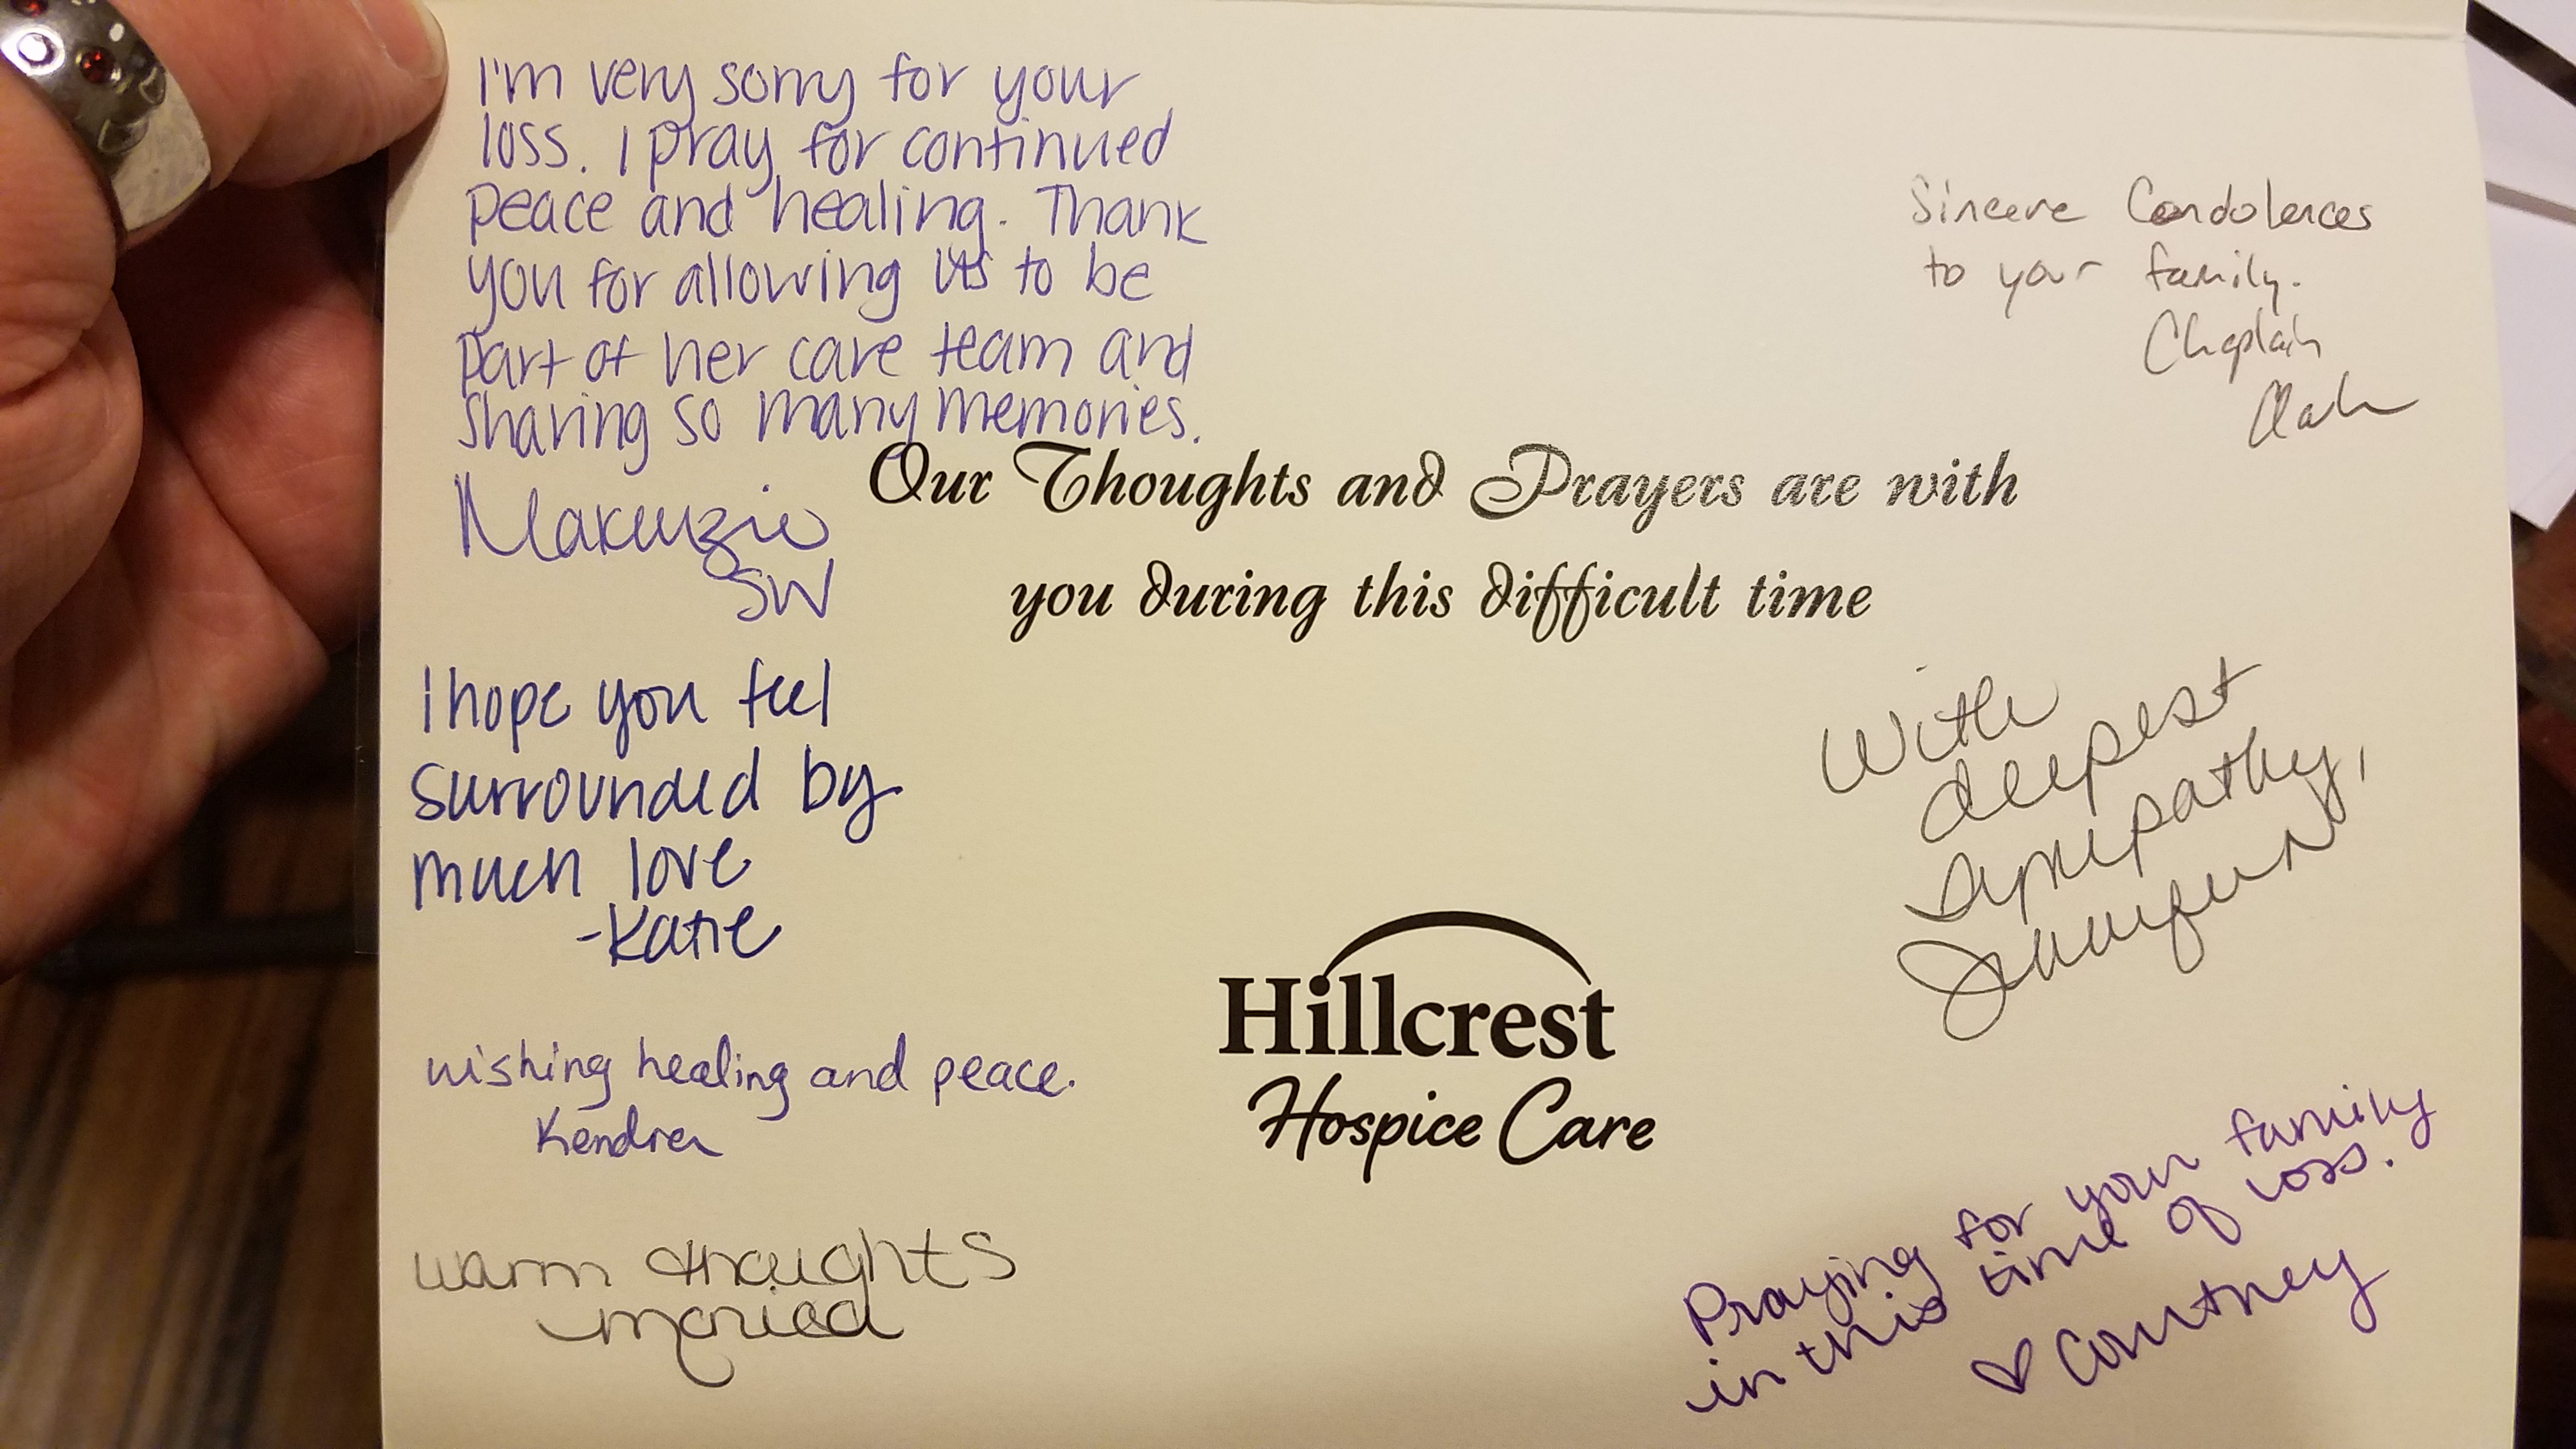 I'm very sorry for your
loss. I pray for continued
peace and healing. Thank
you for allowing us to be
part of her care team and
sharing so many memories.
Makenzie
SW
Sincere Condolences
to your family.
Chaplain
Our Thoughts and Prayers are with
you during this difficult time
I hope you feel
surrounded by
much love
-Katie
With
deepest
sympathy,
Jennifer
wishing healing and peace.
Kendra
Hillcrest
Hospice Care
warm thoughts
monica
Praying for your family
in this time of loss.
♡ Courtney